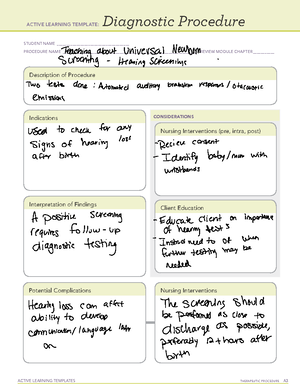 ACTIVE LEARNING TEMPLATE: Diagnostic Procedure
STUDENT NAME
PROCEDURE NAME Teaching about Universal Newborn REVIEW MODULE CHAPTER
Screening - Hearing Screenings
Description of Procedure
Two tests done: Automated auditory brainstem responses / otoacoustic
emissions
Indications
used to check for any
signs of hearing loss
after birth
CONSIDERATIONS
Nursing Interventions (pre, intra, post)
- Review consent
- Identify baby/mom with
wristbands
Interpretation of Findings
A positive screening
requires follow-up
diagnostic testing
Client Education
- Educate client on importance
of hearing tests
- Instruct need to of when
further testing may be
needed
Potential Complications
Hearing loss can affect
ability to develop
communication/language later
on
Nursing Interventions
The screening should
be performed as close to
discharge as possible,
preferably 12+ hours after
birth
ACTIVE LEARNING TEMPLATES